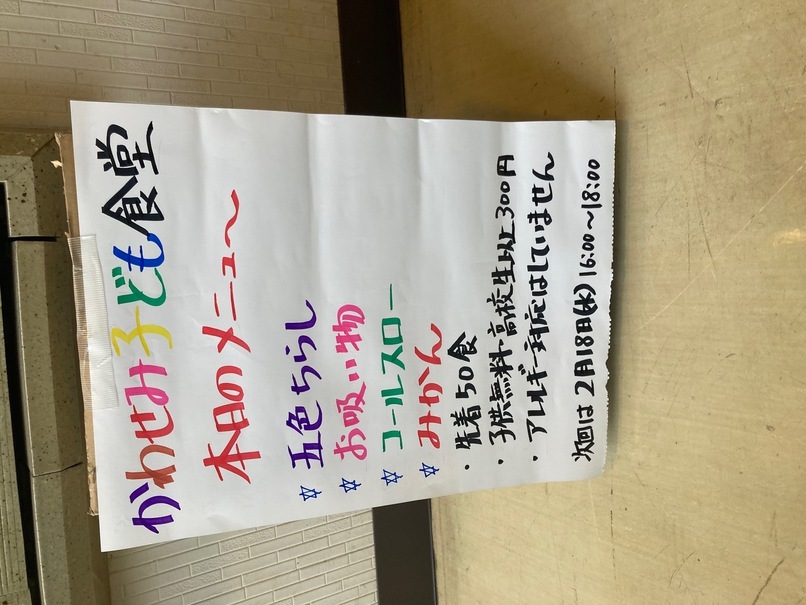 かわせみ子ども食堂
本日のメニュ～
✡ 五色ちらし
✡ お吸い物
✡ コールスロー
✡ みかん
・先着50食
・子供無料・高校生以上300円
・アレルギー対応はしていません
次回は2月18日(水)16:00～18:00